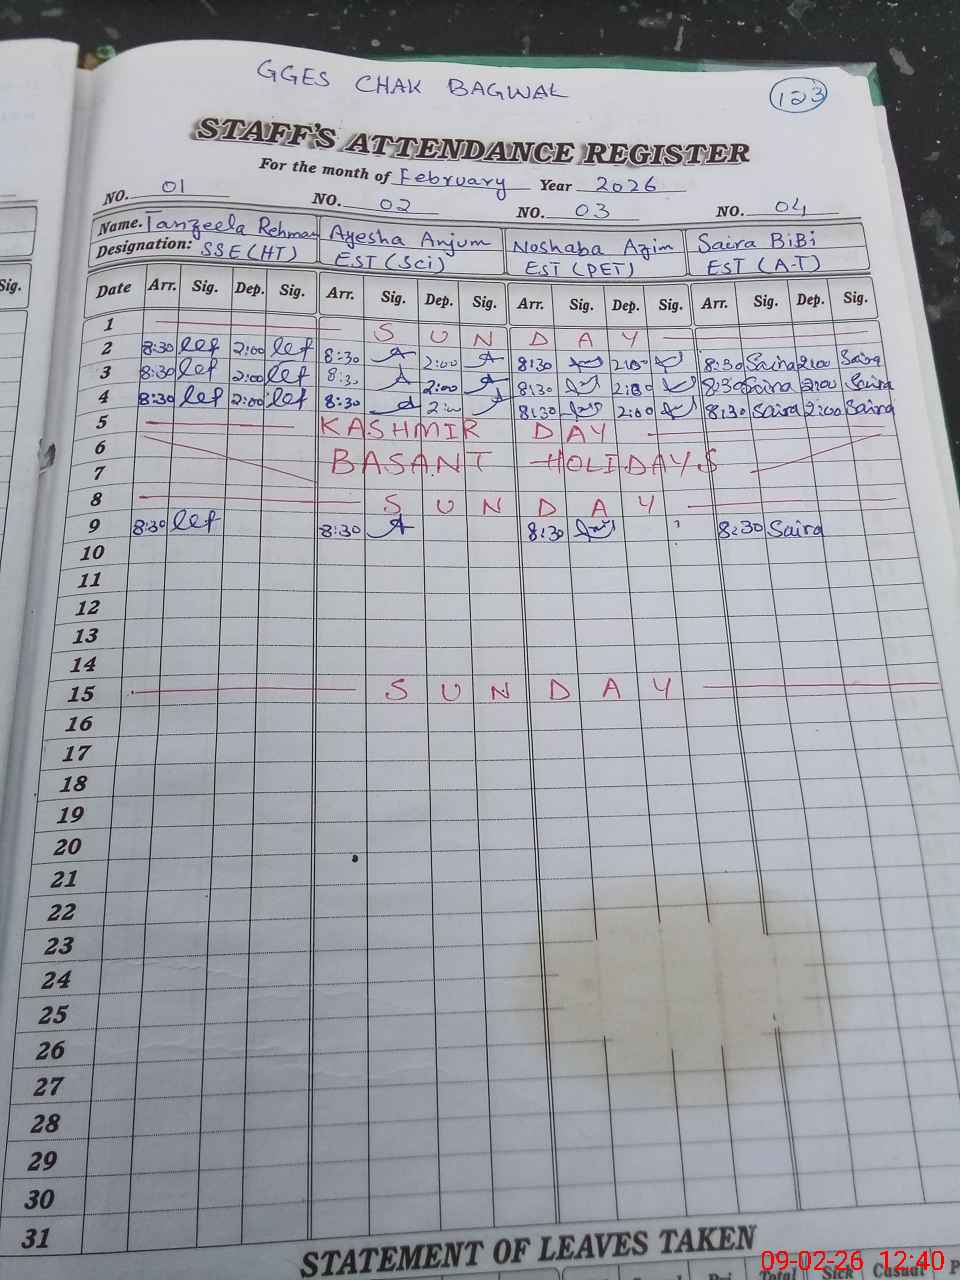 GGES CHAK BAGWAL
123
STAFF'S ATTENDANCE REGISTER
For the month of February Year 2026
NO. 01 NO. 02 NO. 03 NO. 04
Name. Tanzeela Rehman Ayesha Anjum Noshaba Azim Saira BiBi
Designation: SSE(HT) EST (Sci) EST (PET) EST (A-T)
Sig.
Date Arr. Sig. Dep. Sig. Arr. Sig. Dep. Sig. Arr. Sig. Dep. Sig. Arr. Sig. Dep. Sig.
1 SUNDAY
2 8:30 2:00 8:30 2:00 8:30 2:00 8:30 Saira 2:00 Saira
3 8:30 2:00 8:30 2:00 8:30 2:00 8:30 Saira 2:00 Saira
4 8:30 2:00 8:30 2:00 8:30 2:00 8:30 Saira 2:00 Saira
5 KASHMIR DAY
6
7 BASANT HOLIDAYS
8 SUNDAY
9 8:30 8:30 8:30 8:30 Saira
10
11
12
13
14
15 SUNDAY
16
17
18
19
20
21
22
23
24
25
26
27
28
29
30
31
STATEMENT OF LEAVES TAKEN
09-02-26 12:40
Total Sick Casual